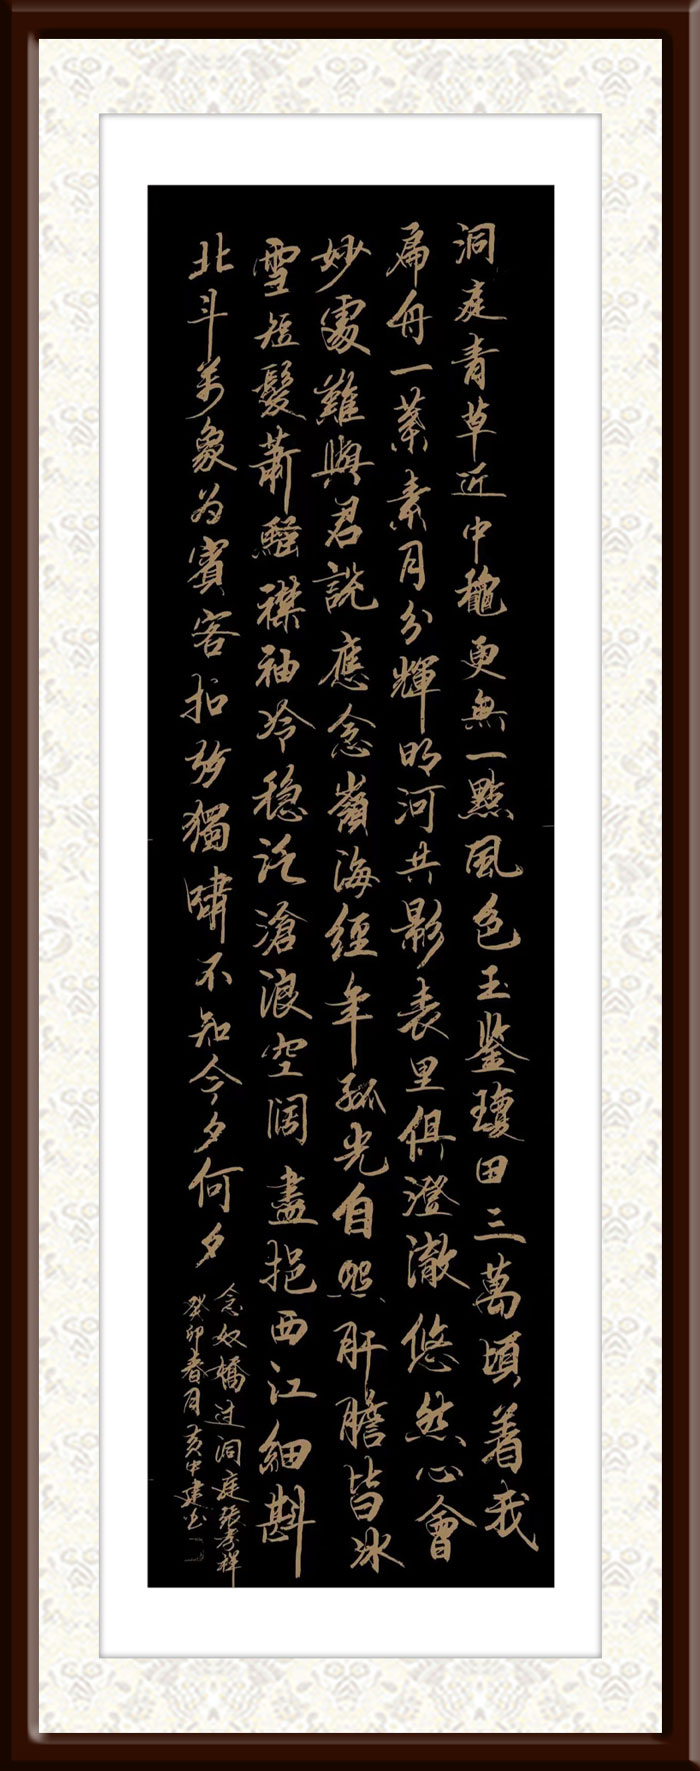 洞庭青草近中秋更無一點風色玉鉴瓊田三萬頃着我
扁舟一葉素月分輝明河共影表里俱澄澈悠然心會
妙處難與君説應念嶺海經年孤光自照肝膽皆冰
雪短髮蕭騷襟袖冷稳泛滄浪空阔盡挹西江細斟
北斗萬象为賓客扣舷獨嘯不知今夕何夕
念奴嬌过洞庭張孝祥
癸卯春月黄中建书